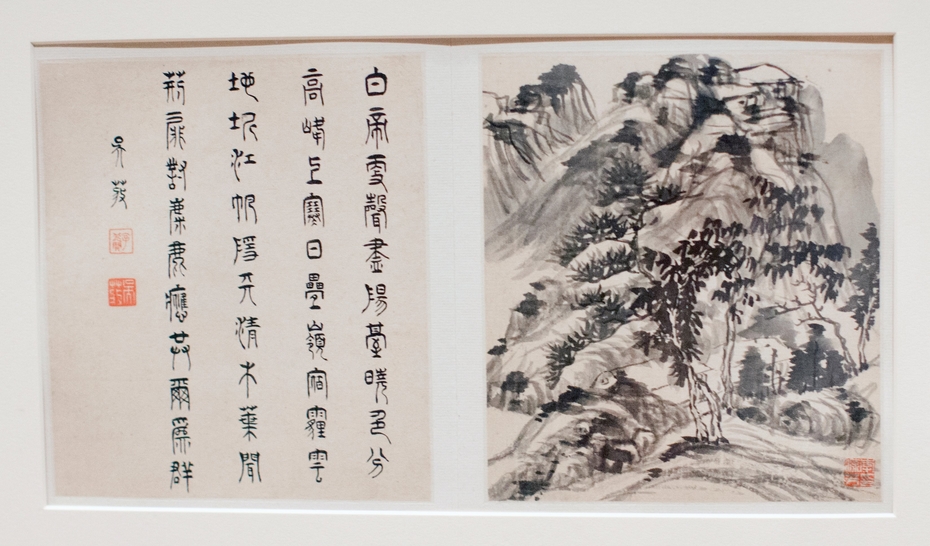 白帝更聲盡陽臺曉色分
高峰上寒日疊嶺宿霾雲
地坼江帆隱天清木葉聞
荆扉對麋鹿應共爾為群
吳